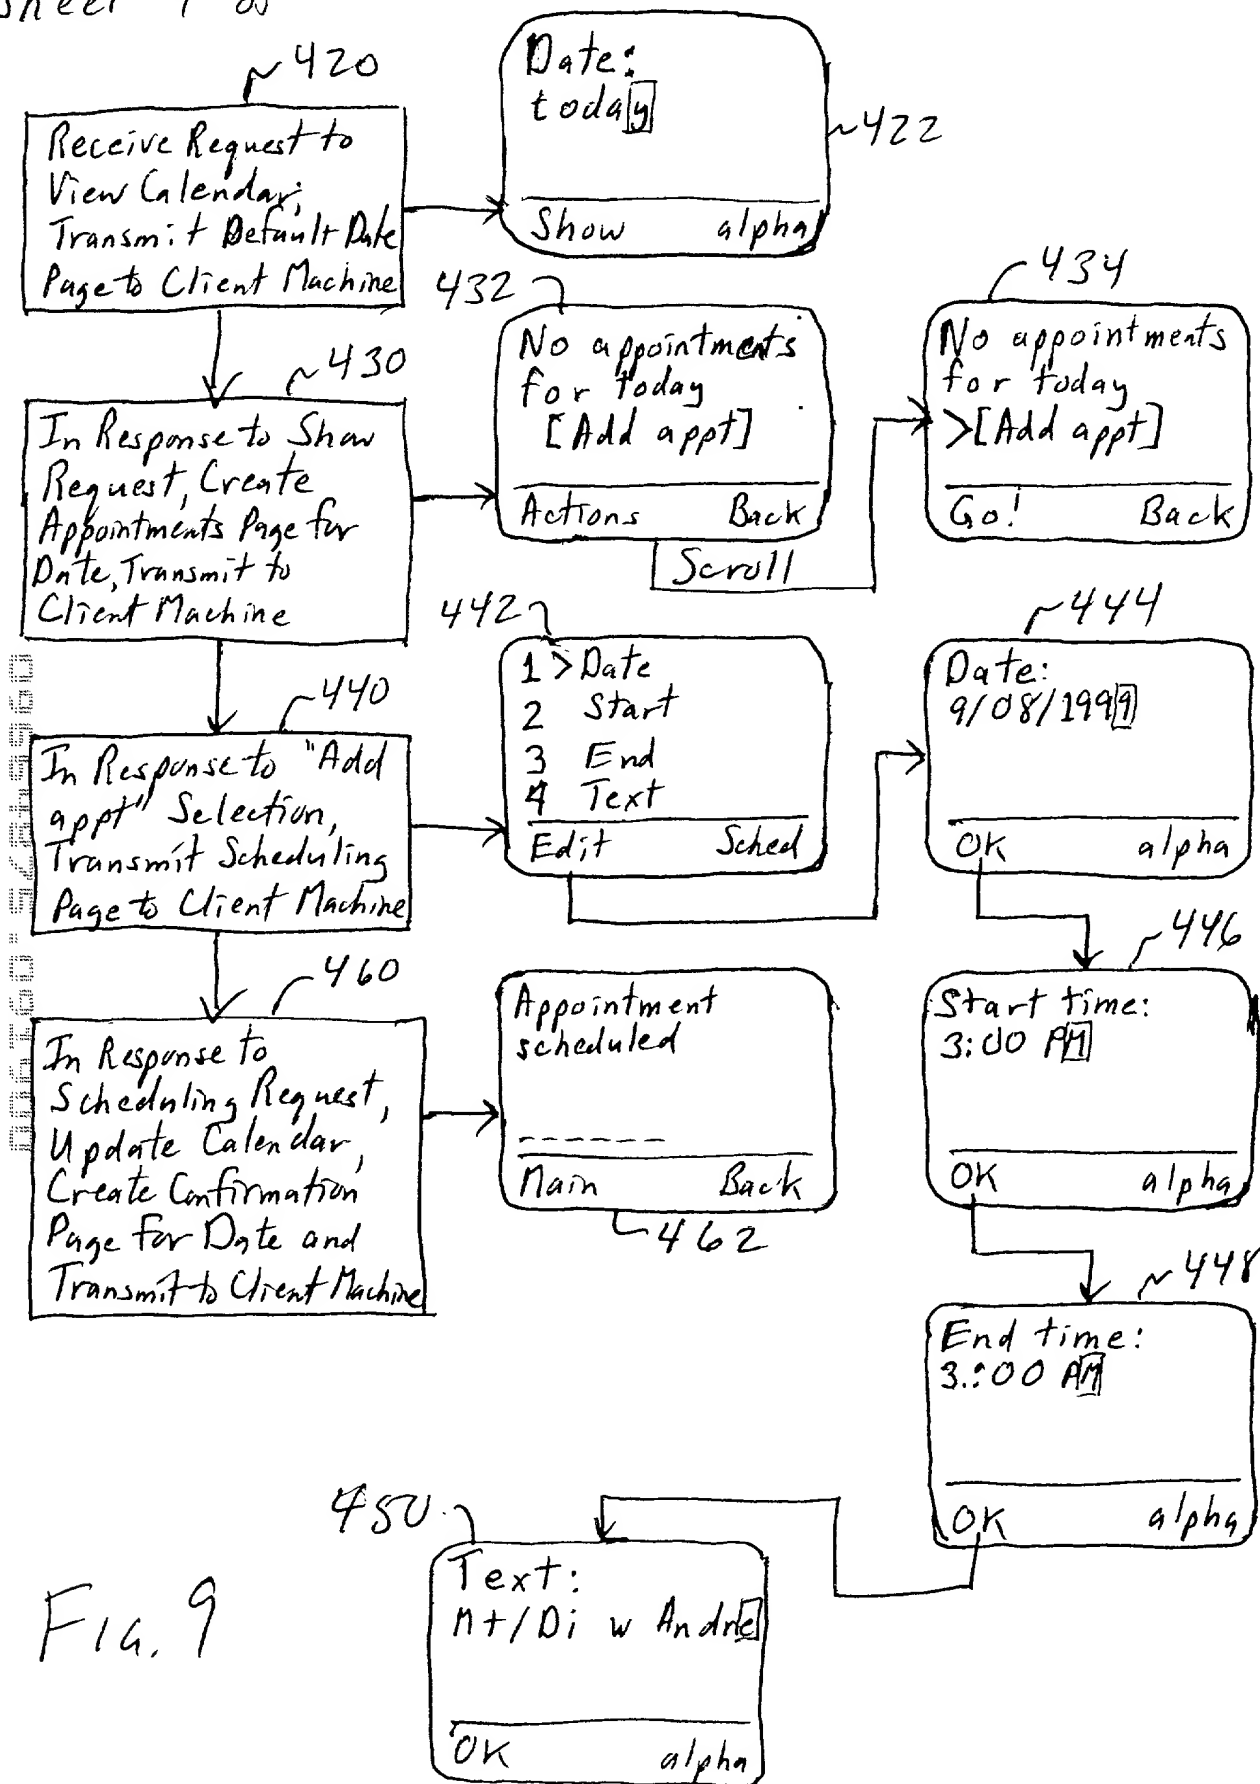 sheet 9 of
420
Receive Request to
View Calendar;
Transmit Default Date
Page to Client Machine
Date:
today
Show alpha
422
430
In Response to Show
Request, Create
Appointments Page for
Date, Transmit to
Client Machine
432
No appointments
for today
[Add appt]
Actions Back
Scroll
434
No appointments
for today
>[Add appt]
Go! Back
440
In Response to "Add
appt" Selection,
Transmit Scheduling
Page to Client Machine
442
1 > Date
2 Start
3 End
4 Text
Edit Sched
444
Date:
9/08/1999
OK alpha
446
Start time:
3:00 PM
OK alpha
460
In Response to
Scheduling Request,
Update Calendar,
Create Confirmation
Page for Date and
Transmit to Client Machine
Appointment
scheduled
------
Main Back
462
448
End time:
3:00 PM
OK alpha
450
Text:
Mt/Di w Andre
OK alpha
Fig. 9